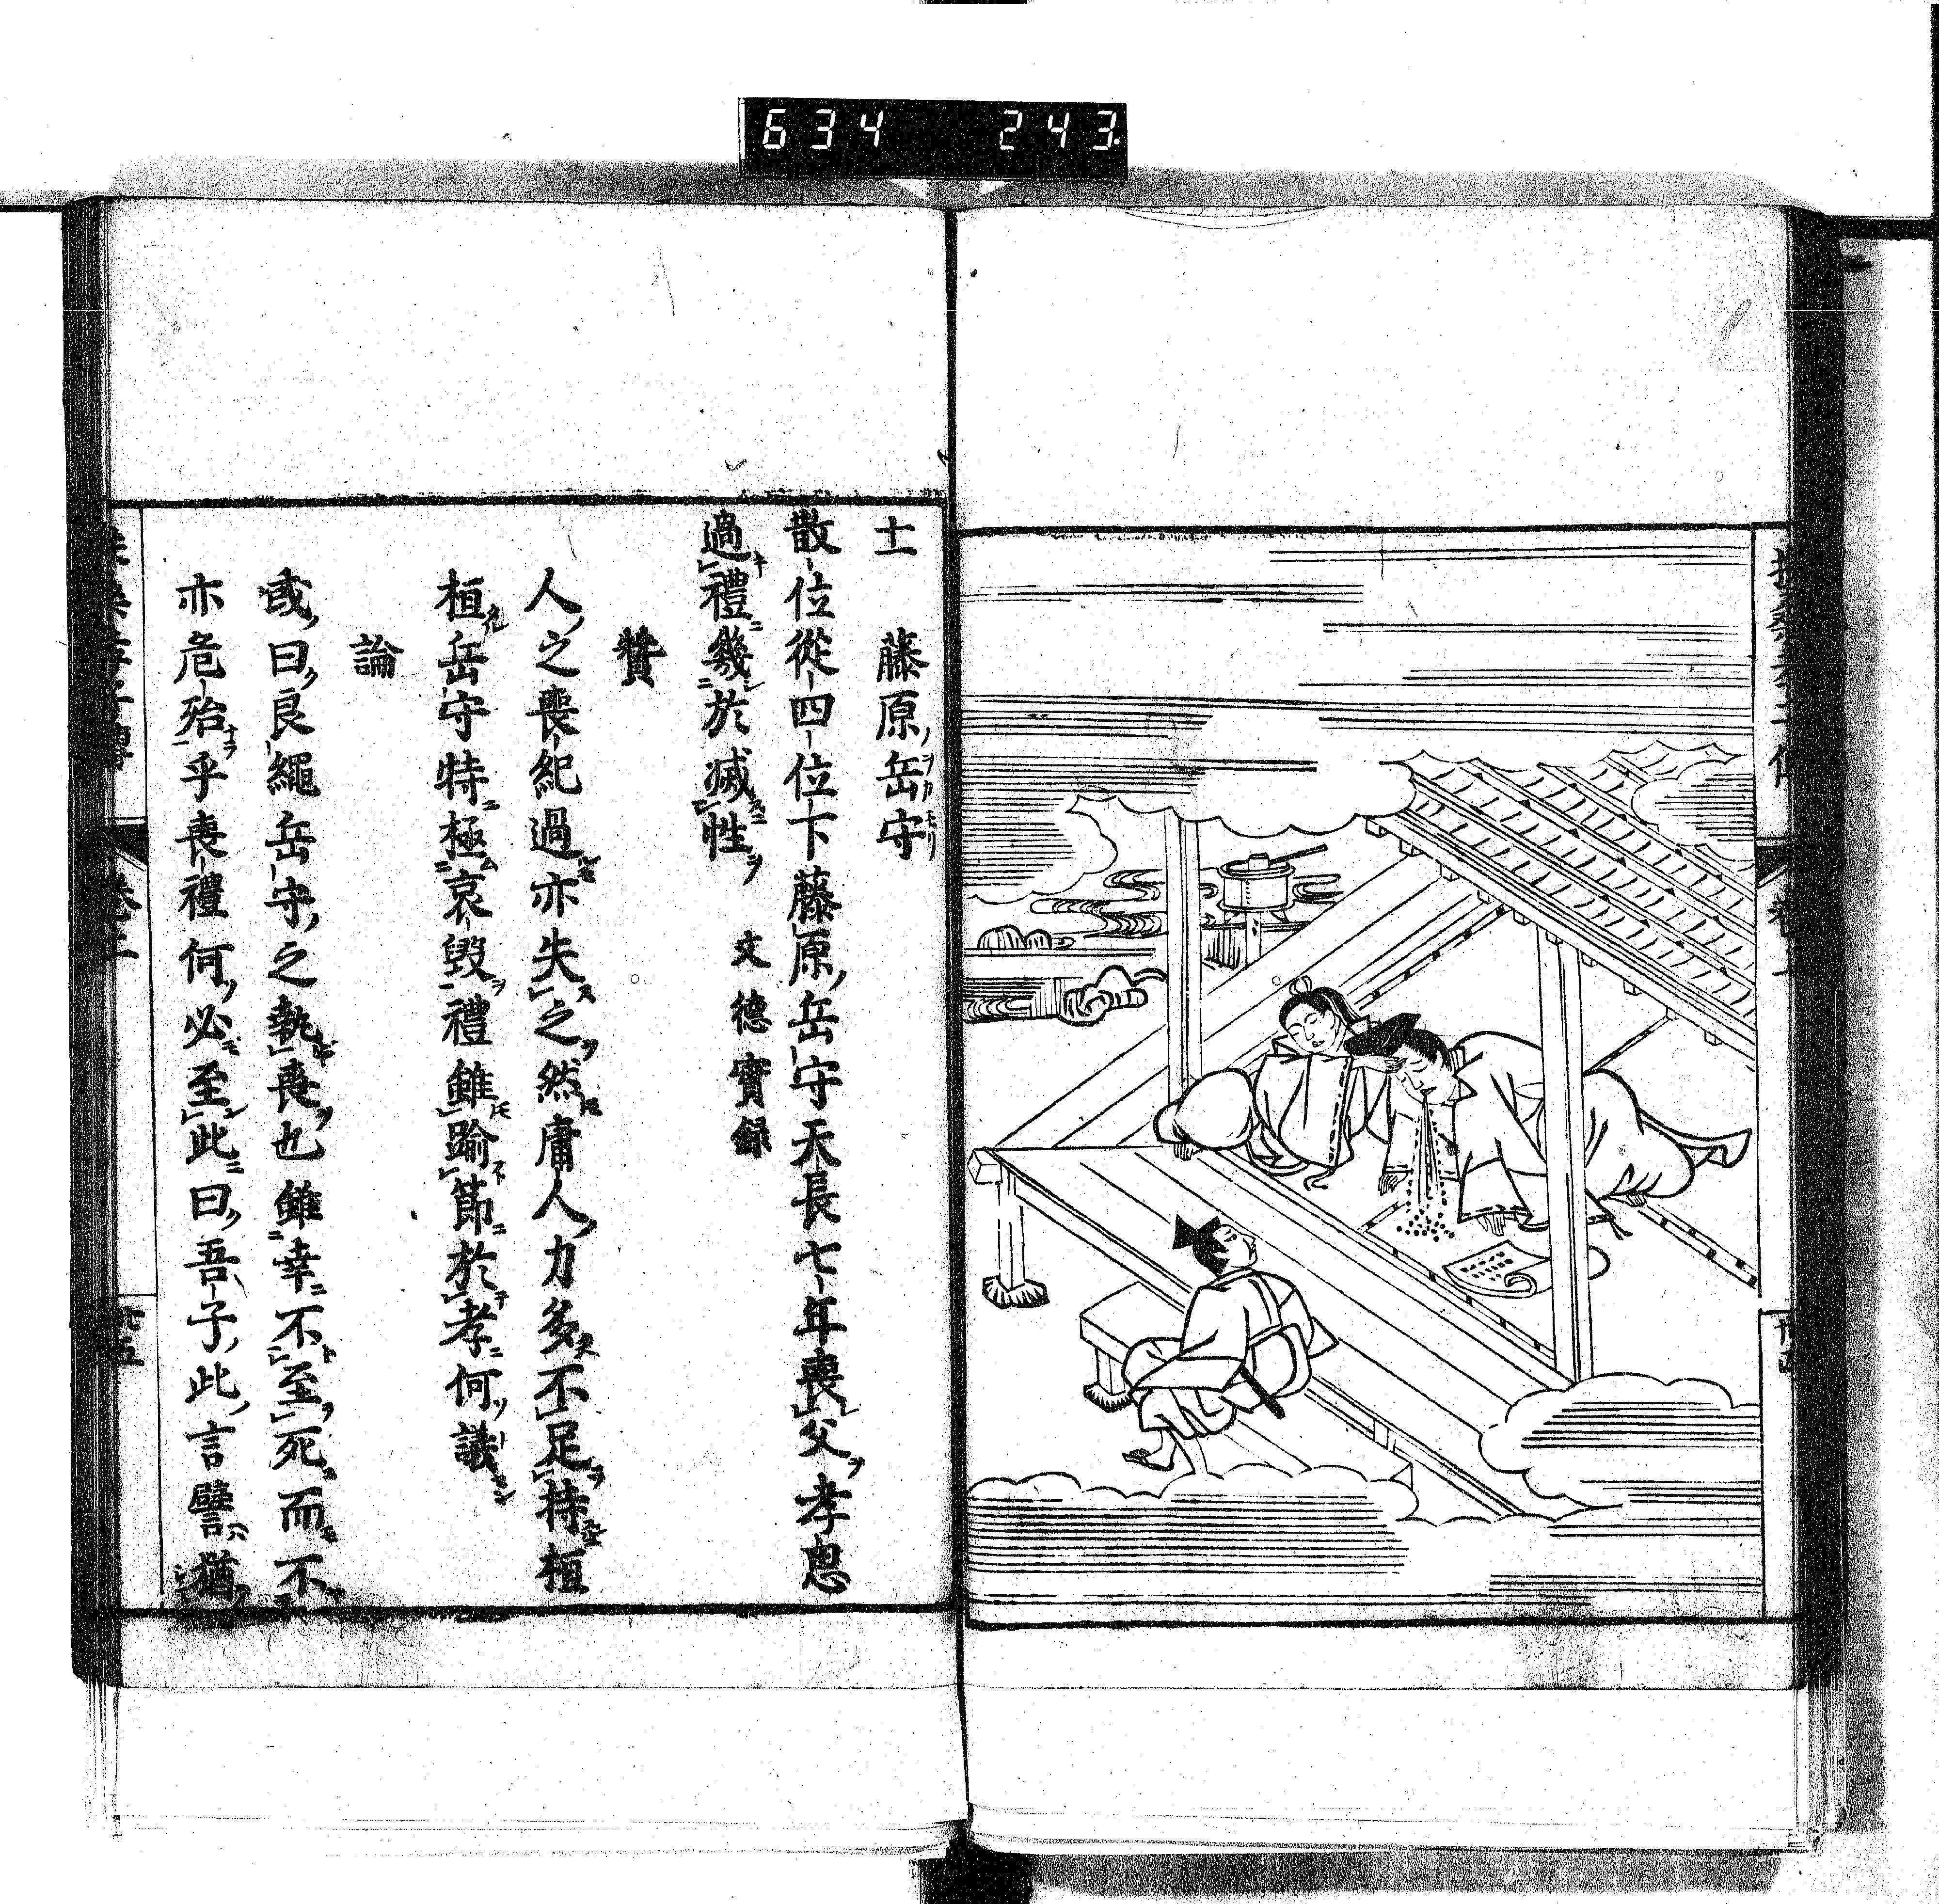 634 243
十一 藤原ノ岳守
ヲカモリ
散位從四位下藤原ノ岳守天長七年喪父孝思
過禮幾於滅性 文德實録
贊
人之喪紀過亦失之然庸人力多不足特桓
桓岳守特極哀毀禮雖踰節於孝何議
論
或曰良繩岳守之執喪也雖幸不至死而不
亦危殆乎喪禮何必至此曰吾子此言譬猶